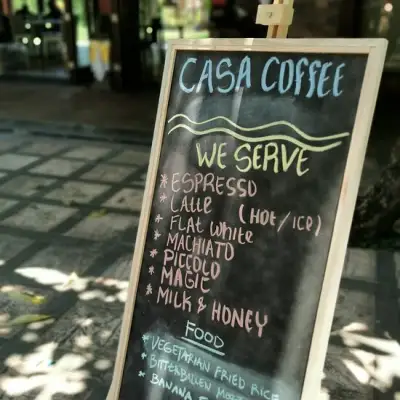 CASA COFFEE
WE SERVE
* ESPRESSO
* LATTE (HOT/ICE)
* FLAT WHITE
* MACHIATO
* PICCOLO
* MAGIC
* MILK & HONEY
FOOD
* VEGETARIAN FRIED RICE
* BITTERBALLEN
* BANANA